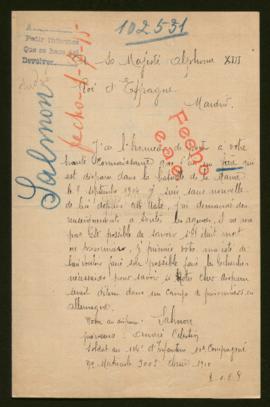 102.531
A
Pedir informes
Que se hace en
Devolver
Salmon
fecho
A Sa Majesté Alphonse XIII
Roi d'Espagne
Madrid
J'ai l'honneur de porter à votre
haute connaissance que j'ai un frère qui
est disparu dans la bataille de la Marne
le 8 septembre 1914 je suis sans nouvelle
de lui depuis cette date. j'ai demandé des
renseignements à toutes les agences, il ne m'a
pas été possible de savoir s'il était mort
ou prisonnier. Je prierais votre majesté de
bien vouloir faire son possible faire les recherches
nécessaires pour savoir si Notre cher disparu
serait détenu dans un camp de prisonniers en
allemagne.
Salmon
prénoms: Célestin
soldat au d'Infanterie Compagnie
No Matricule classe 1910